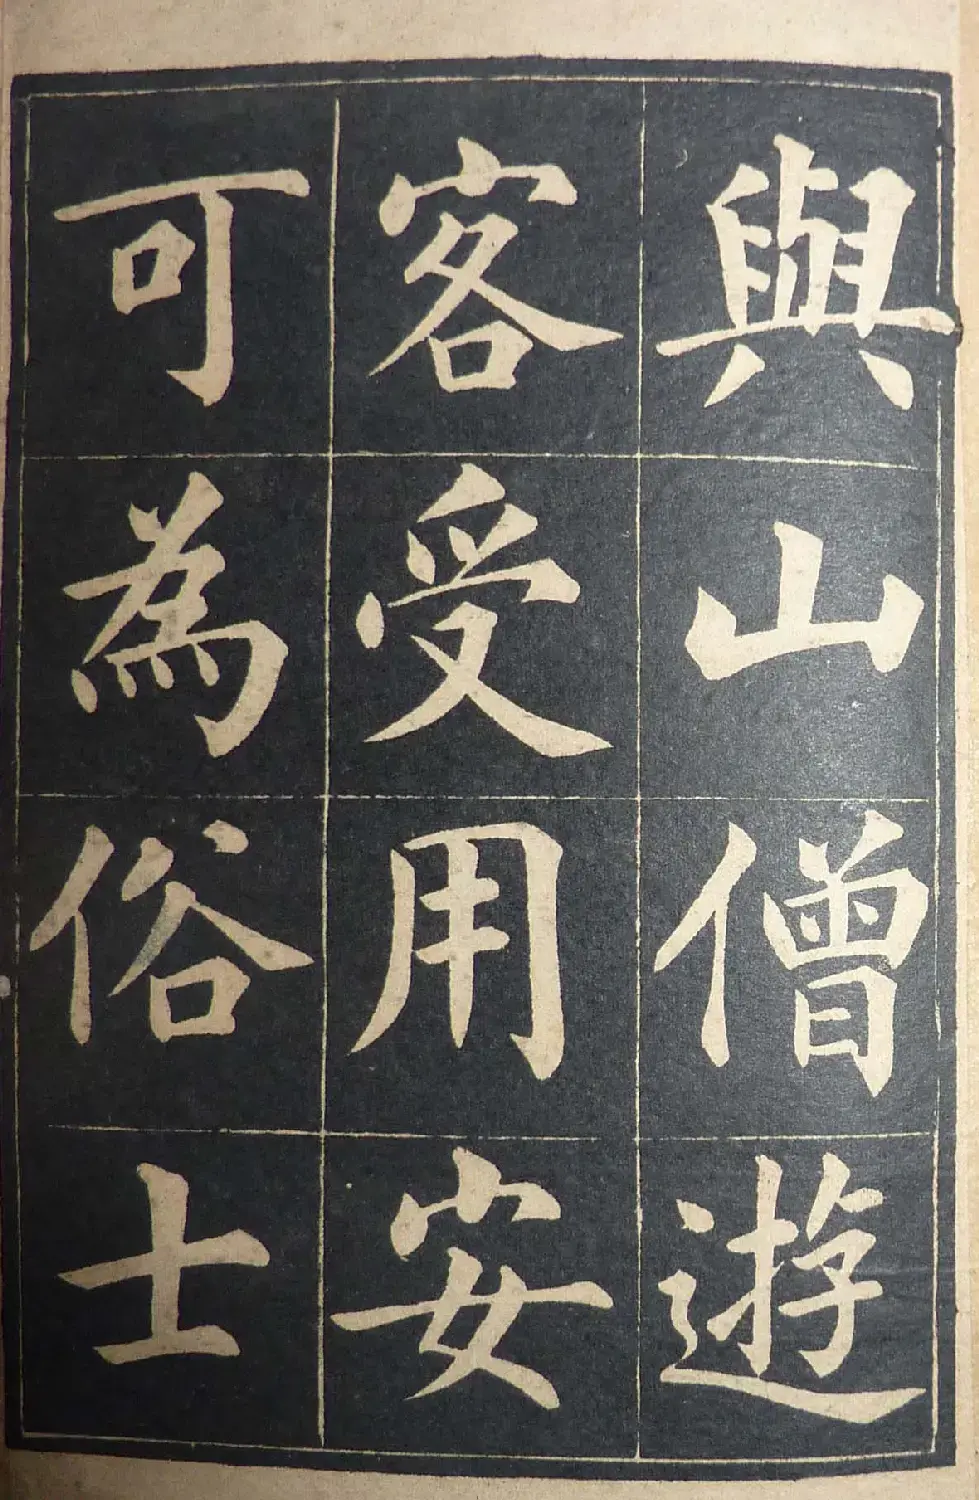 與山僧遊
客受用安
可為俗士